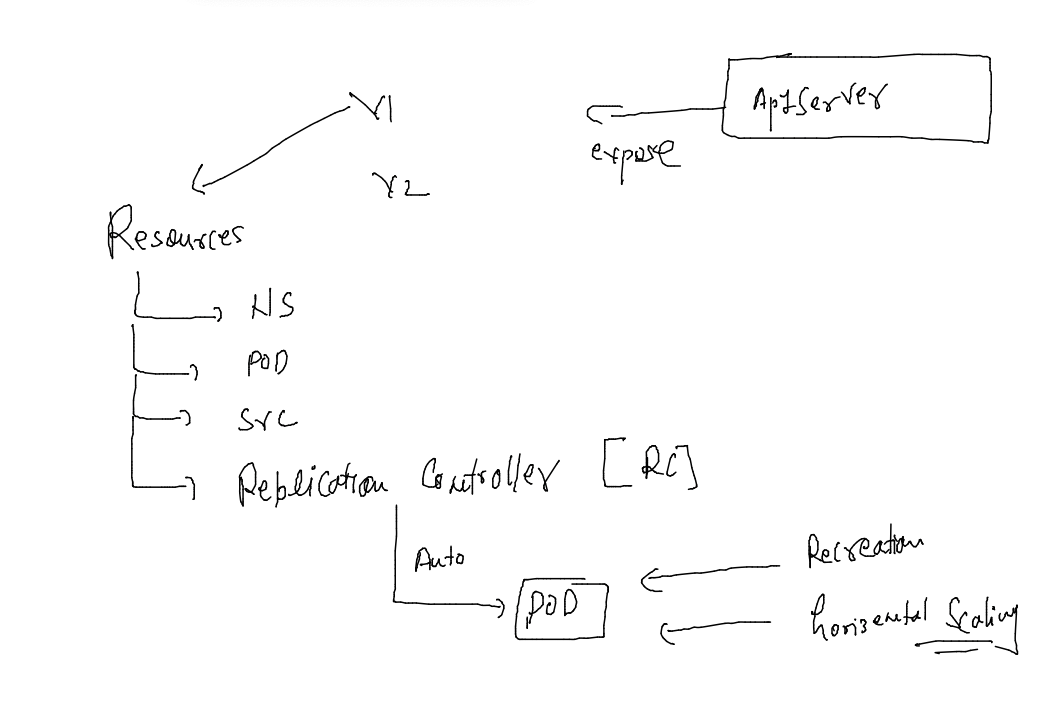 V1
ApIServer
expose
V2
Resources
NS
POD
SVC
Replication Controller [RC]
Auto
Recreation
POD
horizental Scaling